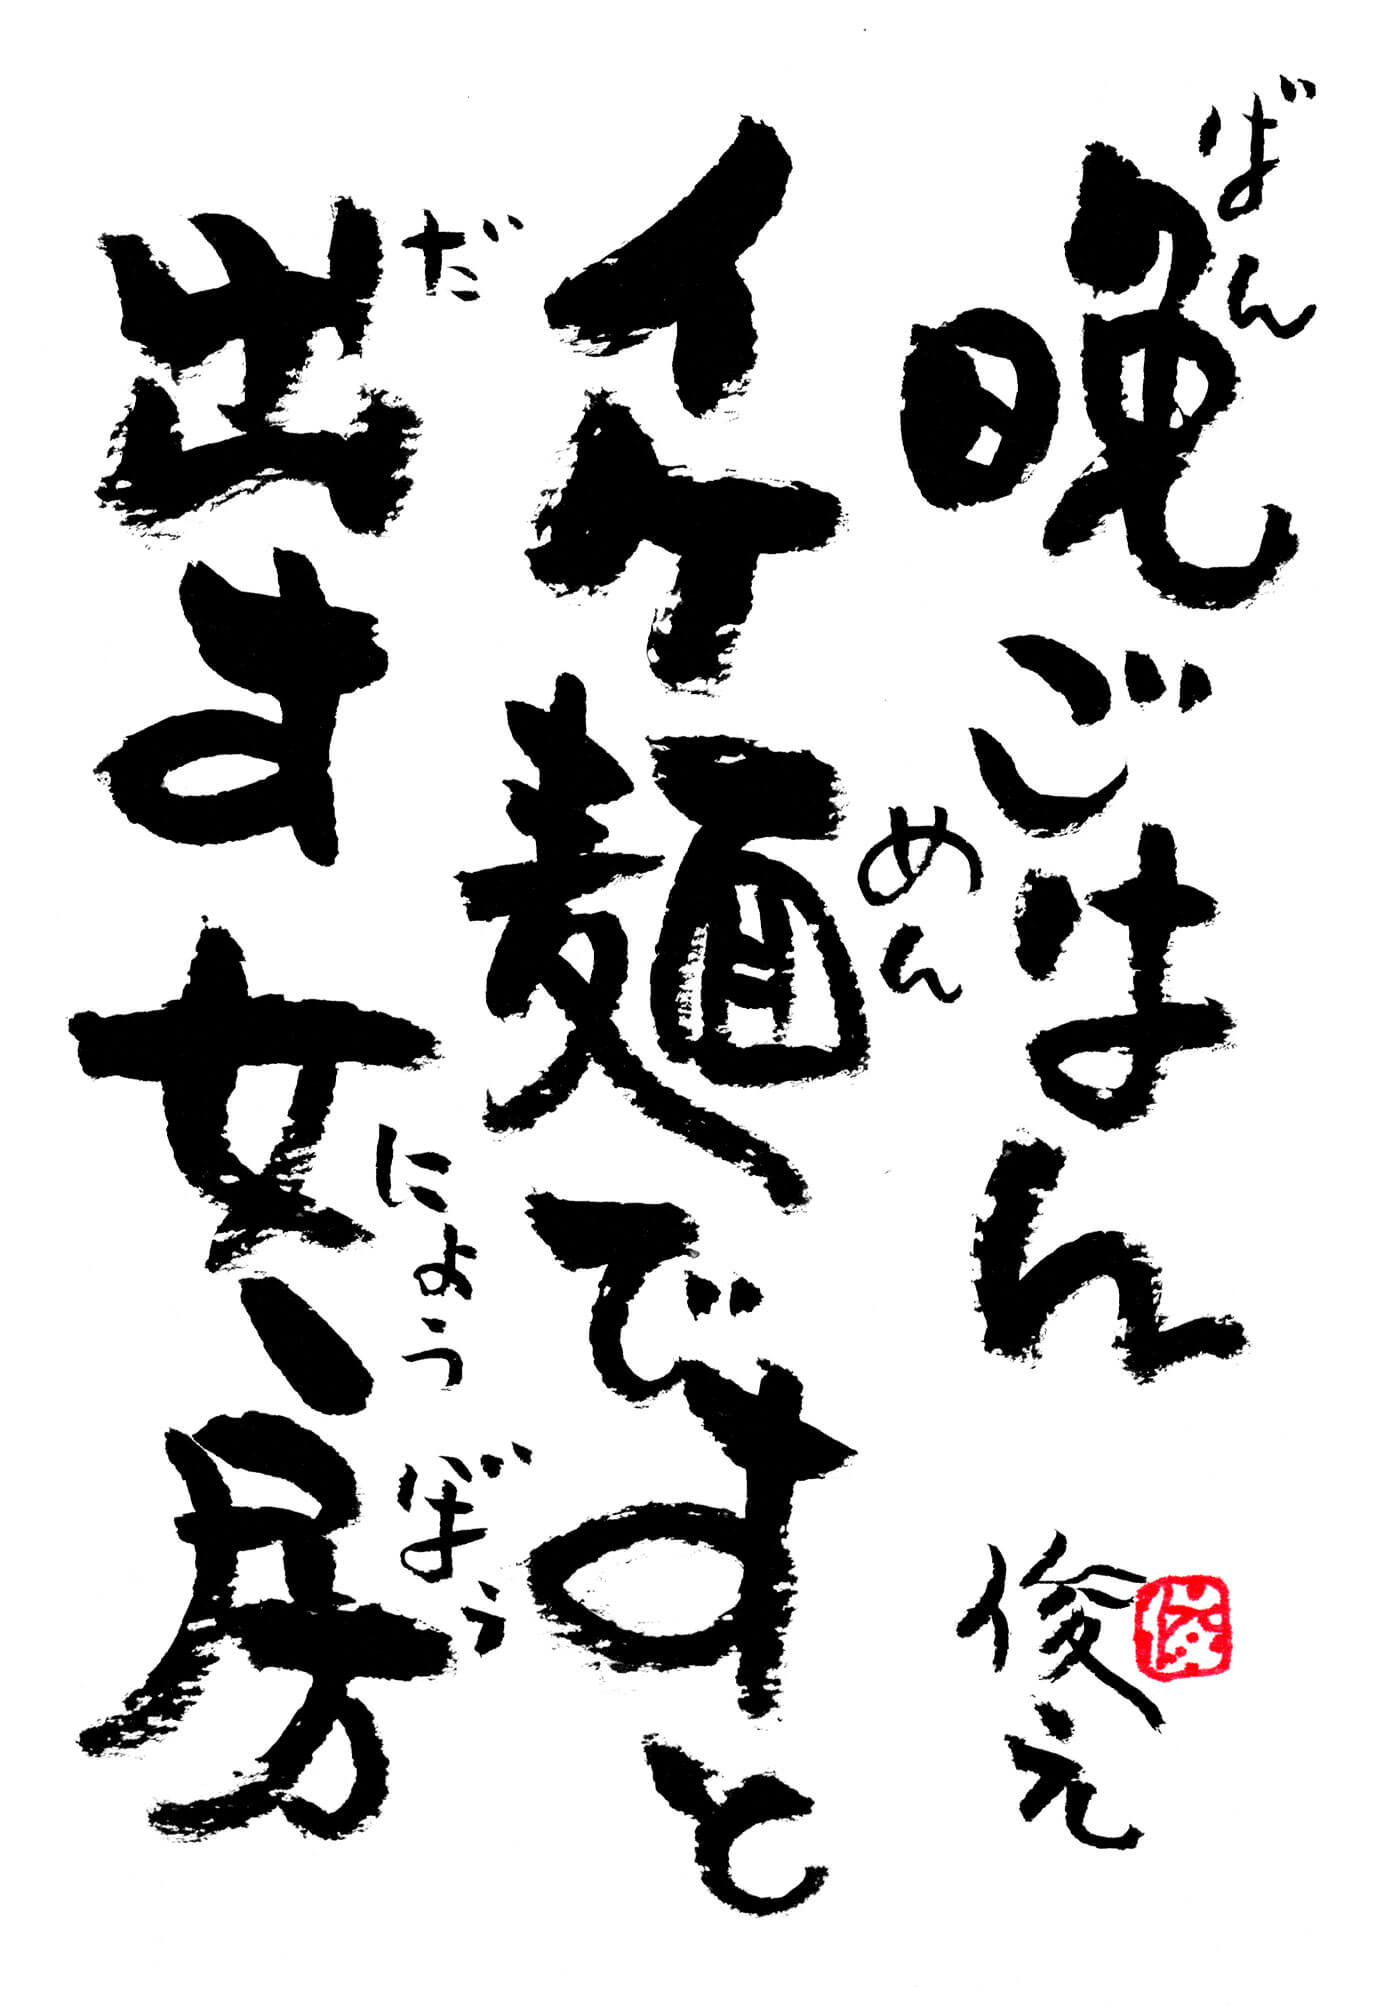 晩ごはん
ばん
イケ麺ですと
めん
出す女房
だ
にょうぼう
俊え